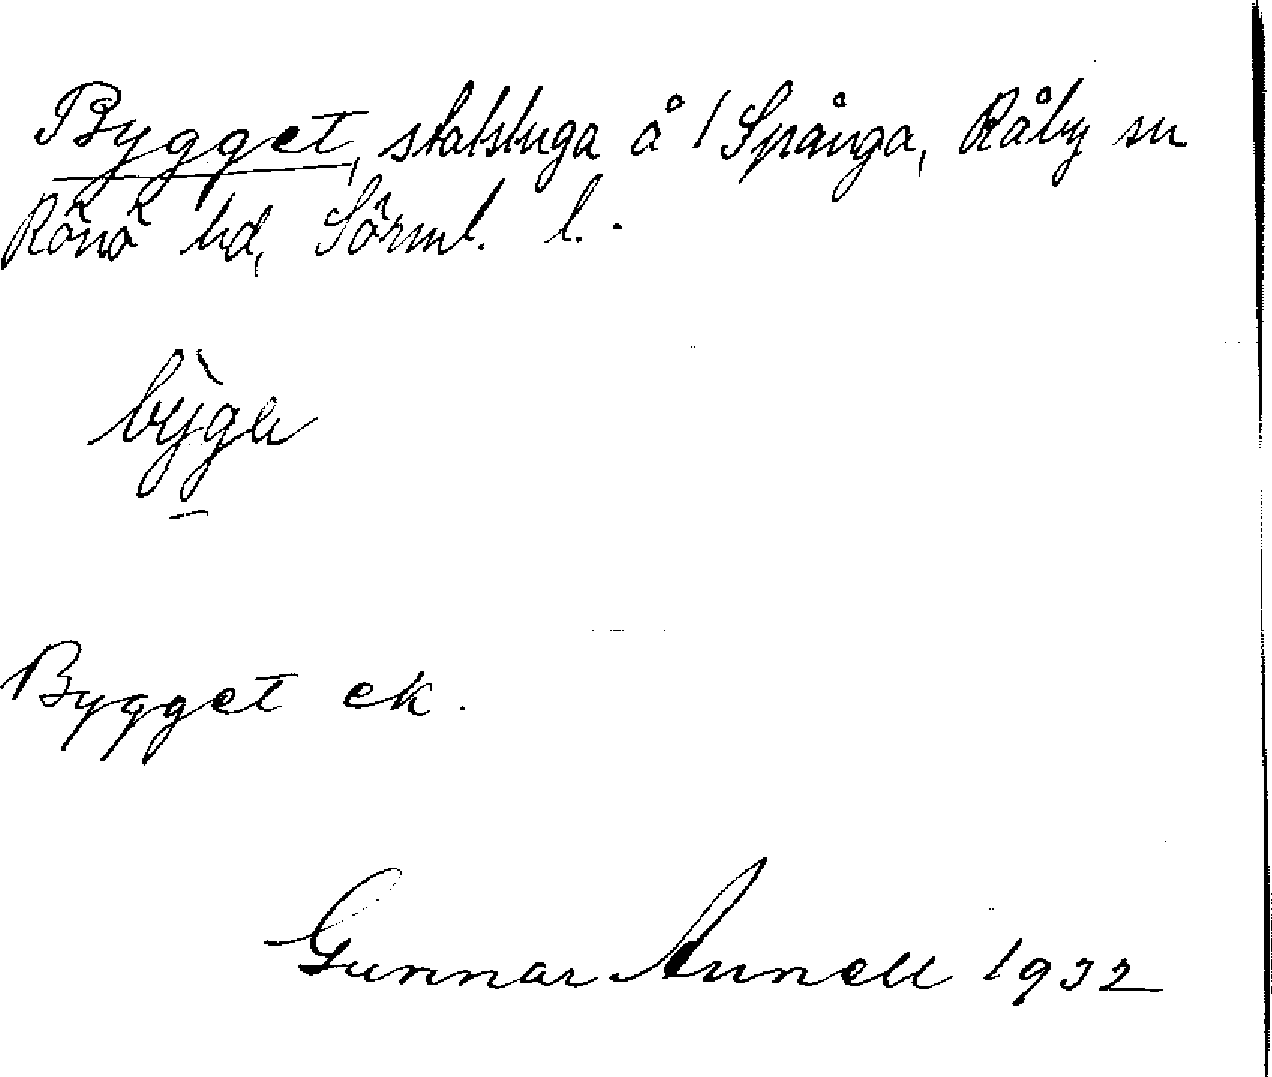 Bygget, statstuga å 1 Spånga, Råby sn
Rönö hd, Sörml. l.
bỳga
Bygget ek.
Gunnar Annell 1932